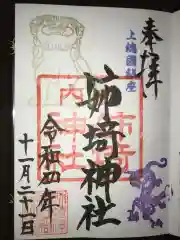 奉拝
上總國鎮座
姉埼神社
令和四年
十一月二十一日